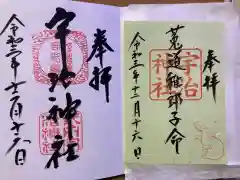 奉拝
宇治神社
令和三年十二月十六日
奉拝
宇治神社
菟道稚郎子命
令和三年十二月十六日